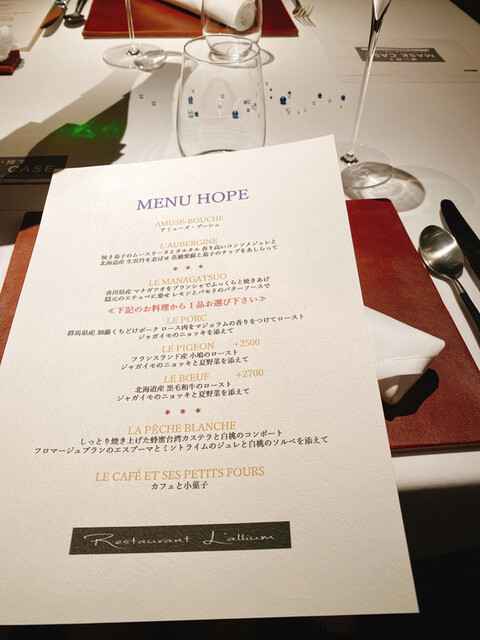 MASK CASE
CASE
MENU HOPE
AMUSE-BOUCHE
アミューズ・ブーシュ
L'AUBERGINE
焼き茄子のムースリーヌとタルタル 香り高いコンソメジュレと
北海道産 生雲丹を忍ばせ 花穂紫蘇と茄子のチップをあしらって
* * *
LE MANAGATSUO
香川県産 マナガツオをプランシャでふっくらと焼きあげ
隠元のエチュベに乗せ レモンとパセリのバターソースで
≪下記のお料理から1品お選び下さい≫
LE PORC
群馬県産 加藤くちどけポーク ロース肉をマジョラムの香りをつけてロースト
ジャガイモのニョッキを添えて
LE PIGEON +2500
フランスランド産 小鳩のロースト
ジャガイモのニョッキと夏野菜を添えて
LE BŒUF +2700
北海道産 黒毛和牛のロースト
ジャガイモのニョッキと夏野菜を添えて
* * *
LA PÊCHE BLANCHE
しっとり焼き上げた蜂蜜台湾カステラと白桃のコンポート
フロマージュブランのエスプーマとミントライムのジュレと白桃のソルベを添えて
LE CAFÉ ET SES PETITS FOURS
カフェと小菓子
Restaurant L'allium